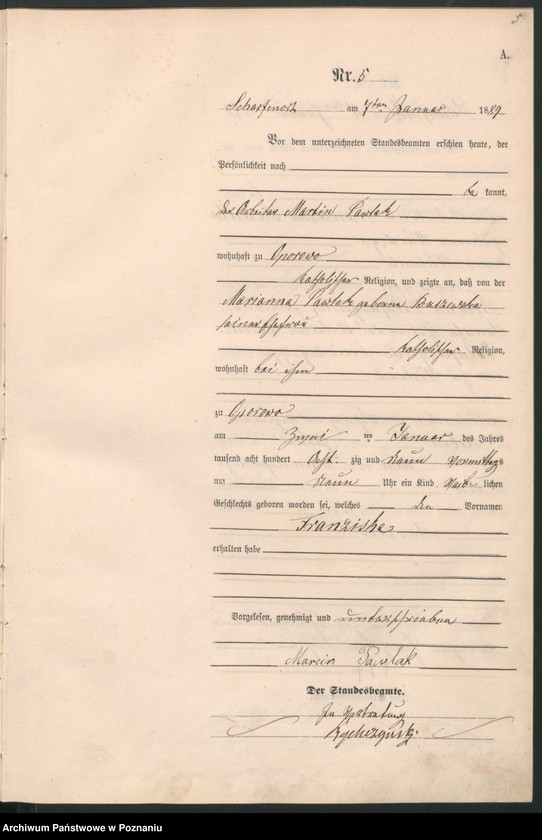 5
A.
Nr. 5
Scharfenort am 7ten Januar 1889
Vor dem unterzeichneten Standesbeamten erschien heute, der
Persönlichkeit nach
be kannt,
der Arbeiter Martin Pawlak
wohnhaft zu Oporowo
katholischer Religion, und zeigte an, daß von der
Marianna Pawlak geborne
seiner Ehefrau
katholischer Religion,
wohnhaft bei ihm
zu Oporowo
am Zwei ten Januar des Jahres
tausend acht hundert Acht zig und Neun Vormittags
um Neun Uhr ein Kind weib lichen
Geschlechts geboren worden sei, welches den Vornamen
Franziska
erhalten habe
Vorgelesen, genehmigt und unterschrieben
Marcin Pawlak
Der Standesbeamte.
In Vertretung
Archiwum Państwowe w Poznaniu